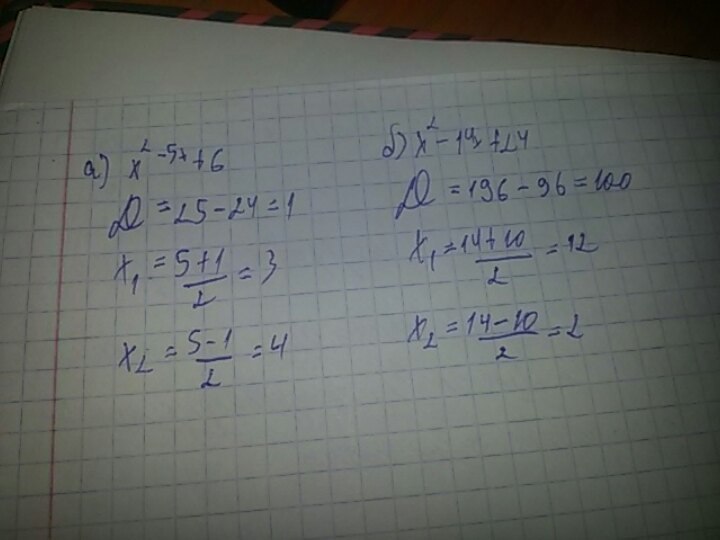 а) x² - 5x + 6
D = 25 - 24 = 1
x₁ = (5+1)/2 = 3
x₂ = (5-1)/2 = 4
б) x² - 14x + 24
D = 196 - 96 = 100
x₁ = (14+10)/2 = 12
x₂ = (14-10)/2 = 2